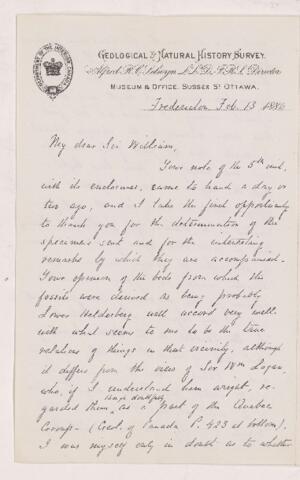 GEOLOGICAL & NATURAL HISTORY SURVEY.
Alfred R. C. Selwyn L.L.D. F.R.S. Director
MUSEUM & OFFICE. SUSSEX ST OTTAWA.
Fredericton Feb. 13 1886
My dear Sir William,
Your note of the 5th inst.
with its enclosures, came to hand a day or
two ago, and I take the first opportunity
to thank you for the determination of the
specimens sent and for the interesting
remarks by which they are accompanied.
Your opinion of the beds from which the
fossils were derived as being probably
Lower Helderberg will accord very well
with what seems to me to be the true
relations of things in that vicinity, although
it differs from the views of Sir Wm Logan,
who, if I understand him aright, re-
garded them, as a part of the Quebec
Group - (Geol. of Canada P. 423 at bottom).
I was myself only in doubt as to whether